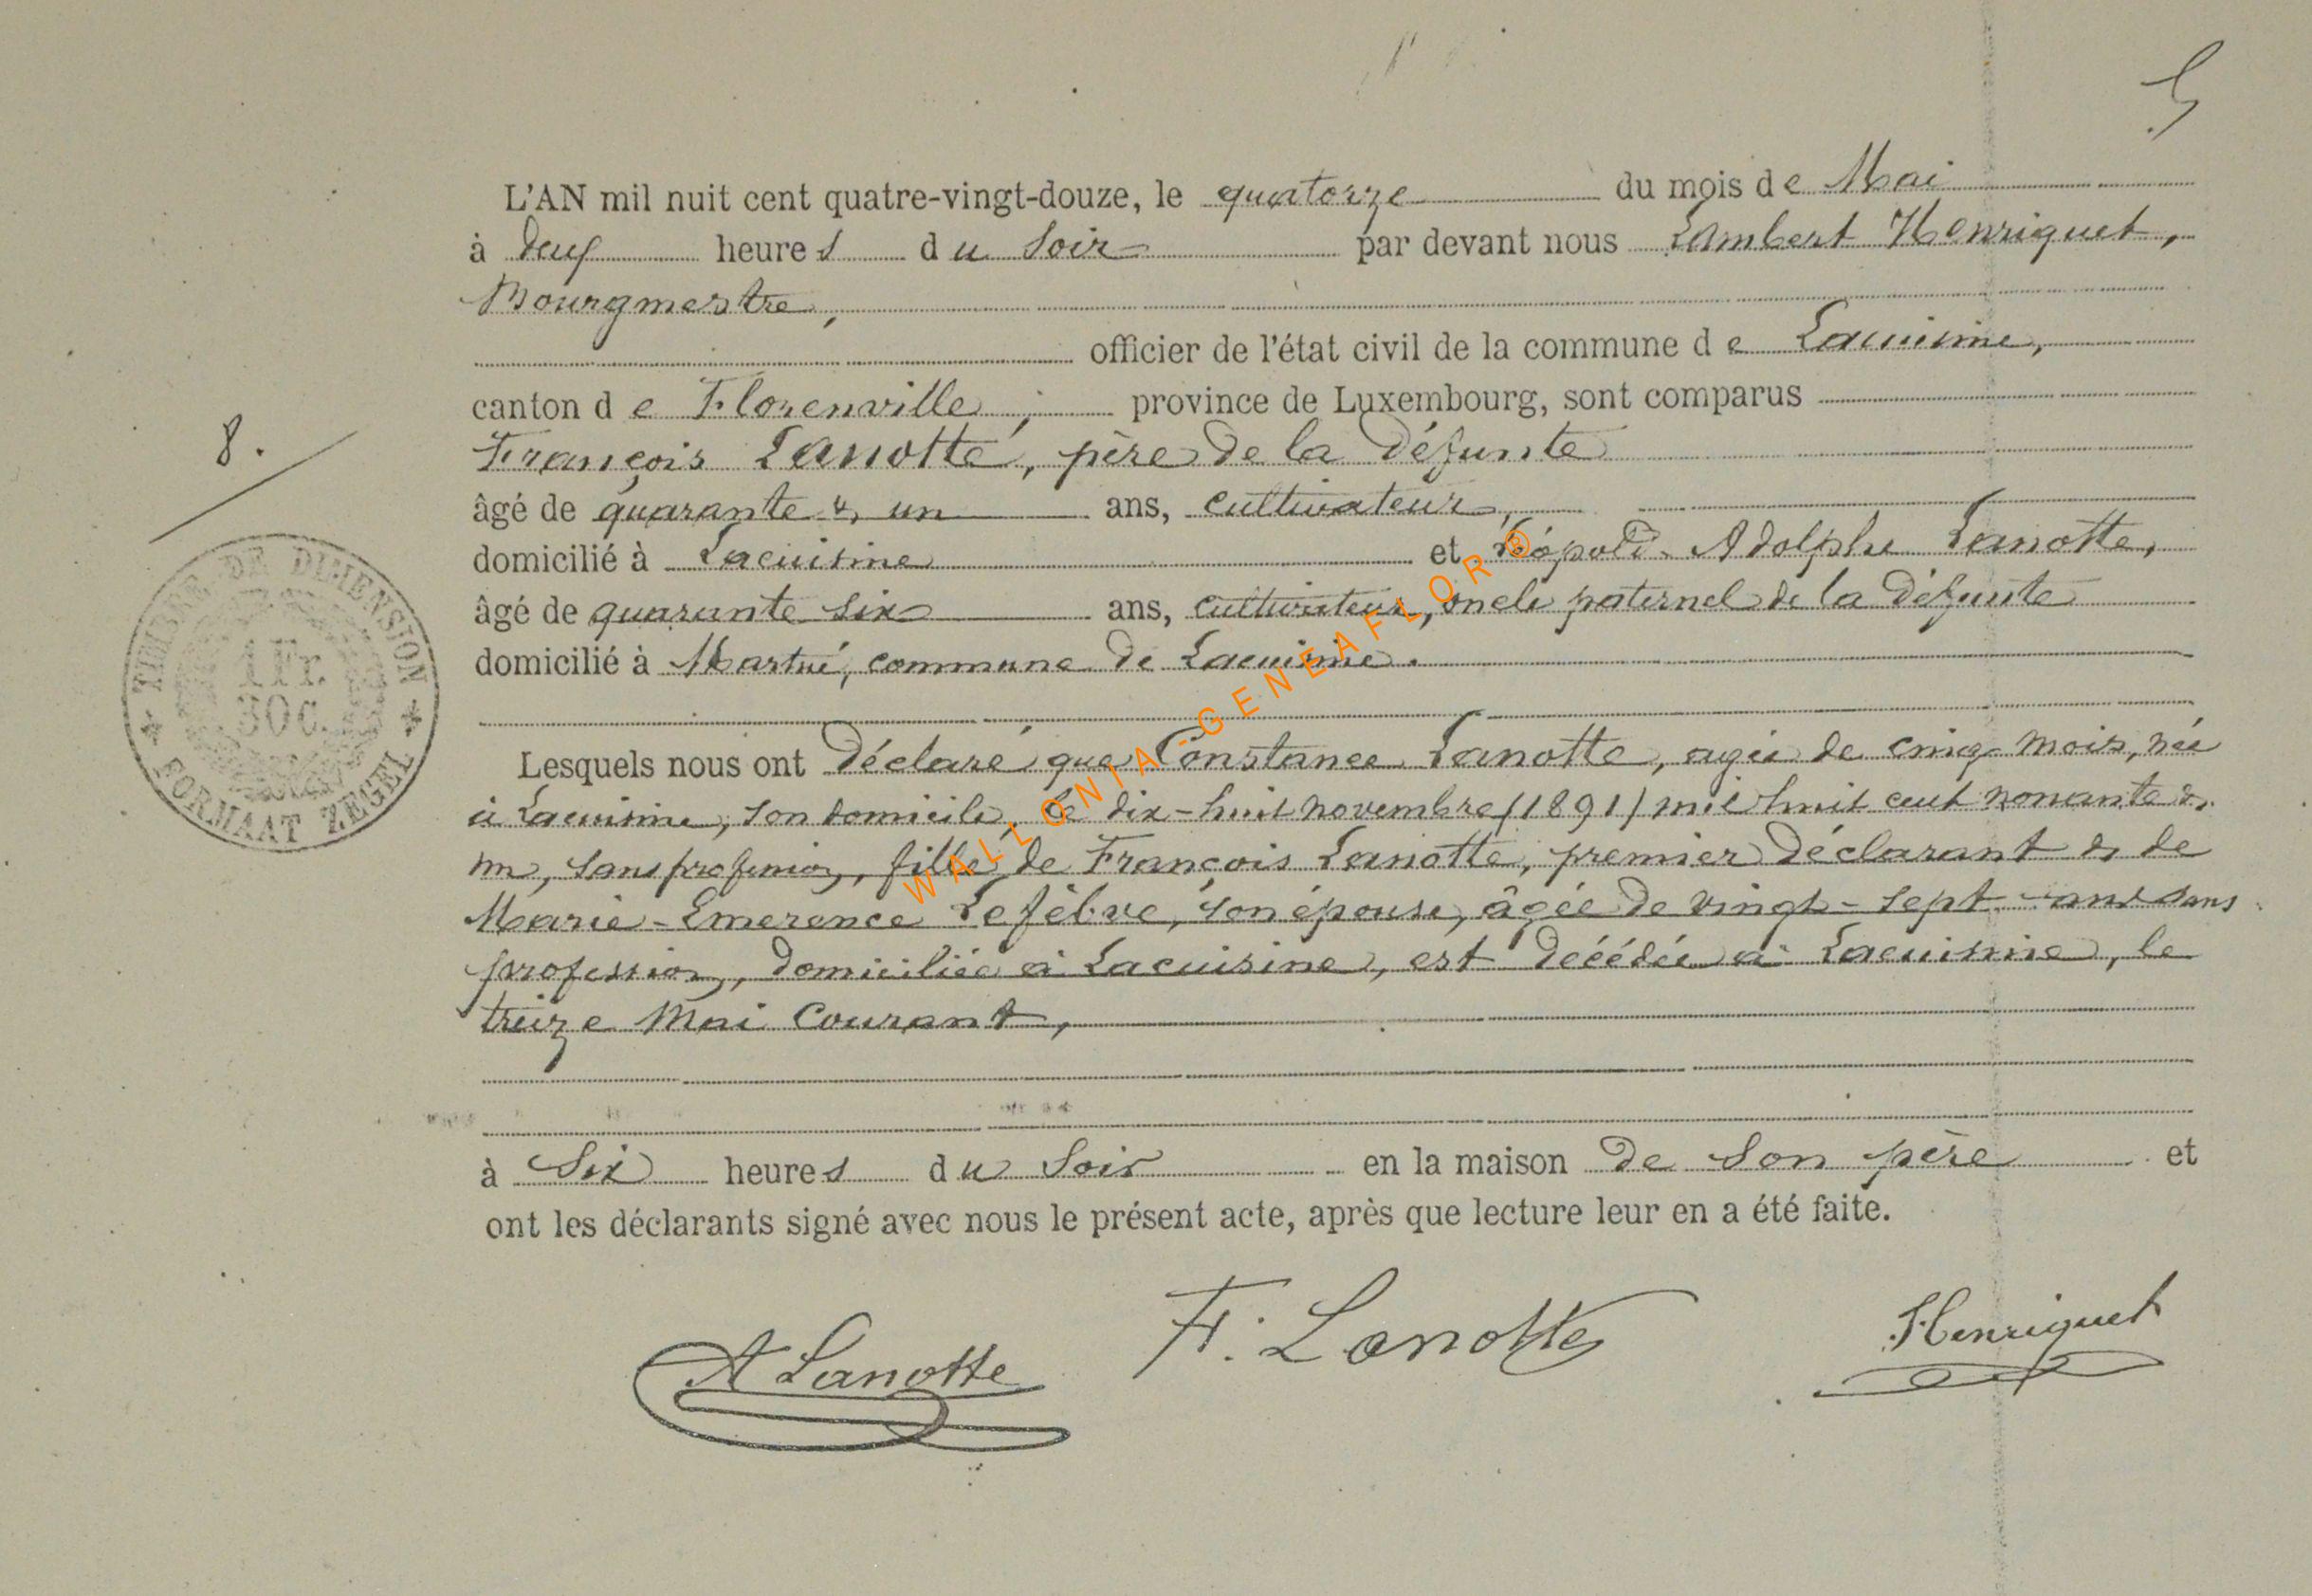 5
L'AN mil huit cent quatre-vingt-douze, le quatorze du mois de Mai
à deux heures du Soir par devant nous Lambert Henriquet,
Bourgmestre,
officier de l'état civil de la commune de Lacuisine,
canton de Florenville, province de Luxembourg, sont comparus
8.
François Lanotte, père de la défunte
âgé de quarante & un ans, cultivateur,
domicilié à Lacuisine et Léopold Adolphe Lanotte,
âgé de quarante six ans, cultivateur, oncle paternel de la défunte
domicilié à Martué, commune de Lacuisine.
TIMBRE DE DIMENSION
1 Fr.
30 c.
FORMAAT ZEGEL
WALLONIA-GENEAFLOR®
Lesquels nous ont déclaré que Constance Lanotte, agée de cinq mois, née
à Lacuisine, son domicile, le dix-huit novembre (1891) mil huit cent nonante &
un, sans profession, fille de François Lanotte, premier déclarant & de
Marie-Emerence Lefèbve, son épouse, âgée de vingt-sept ans sans
profession, domiciliée à Lacuisine, est décédée à Lacuisine, le
treize Mai Courant,
à Six heures du Soir en la maison de Son père et
ont les déclarants signé avec nous le présent acte, après que lecture leur en a été faite.
A Lanotte F. Lanotte Henriquet